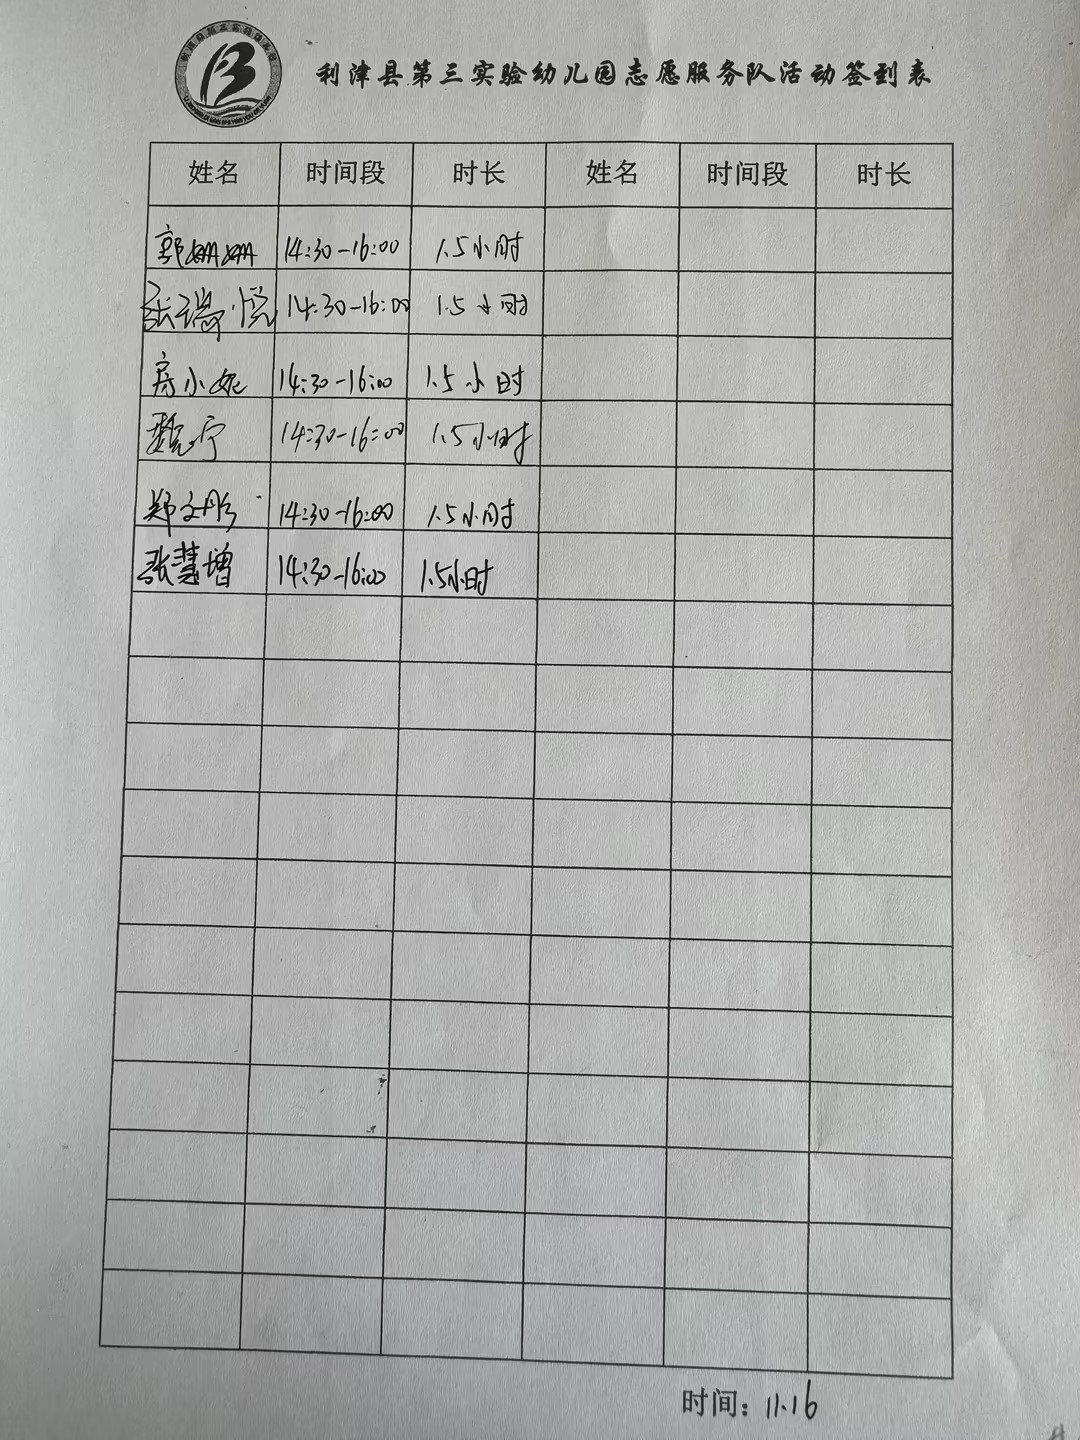 利津县第三实验幼儿园志愿服务队活动签到表
姓名 时间段 时长 姓名 时间段 时长
郭姗姗 14:30-16:00 1.5小时
张瑞悦 14:30-16:00 1.5小时
房小妮 14:30-16:00 1.5小时
魏宁 14:30-16:00 1.5小时
郑文彤 14:30-16:00 1.5小时
张慧增 14:30-16:00 1.5小时
时间：11.16